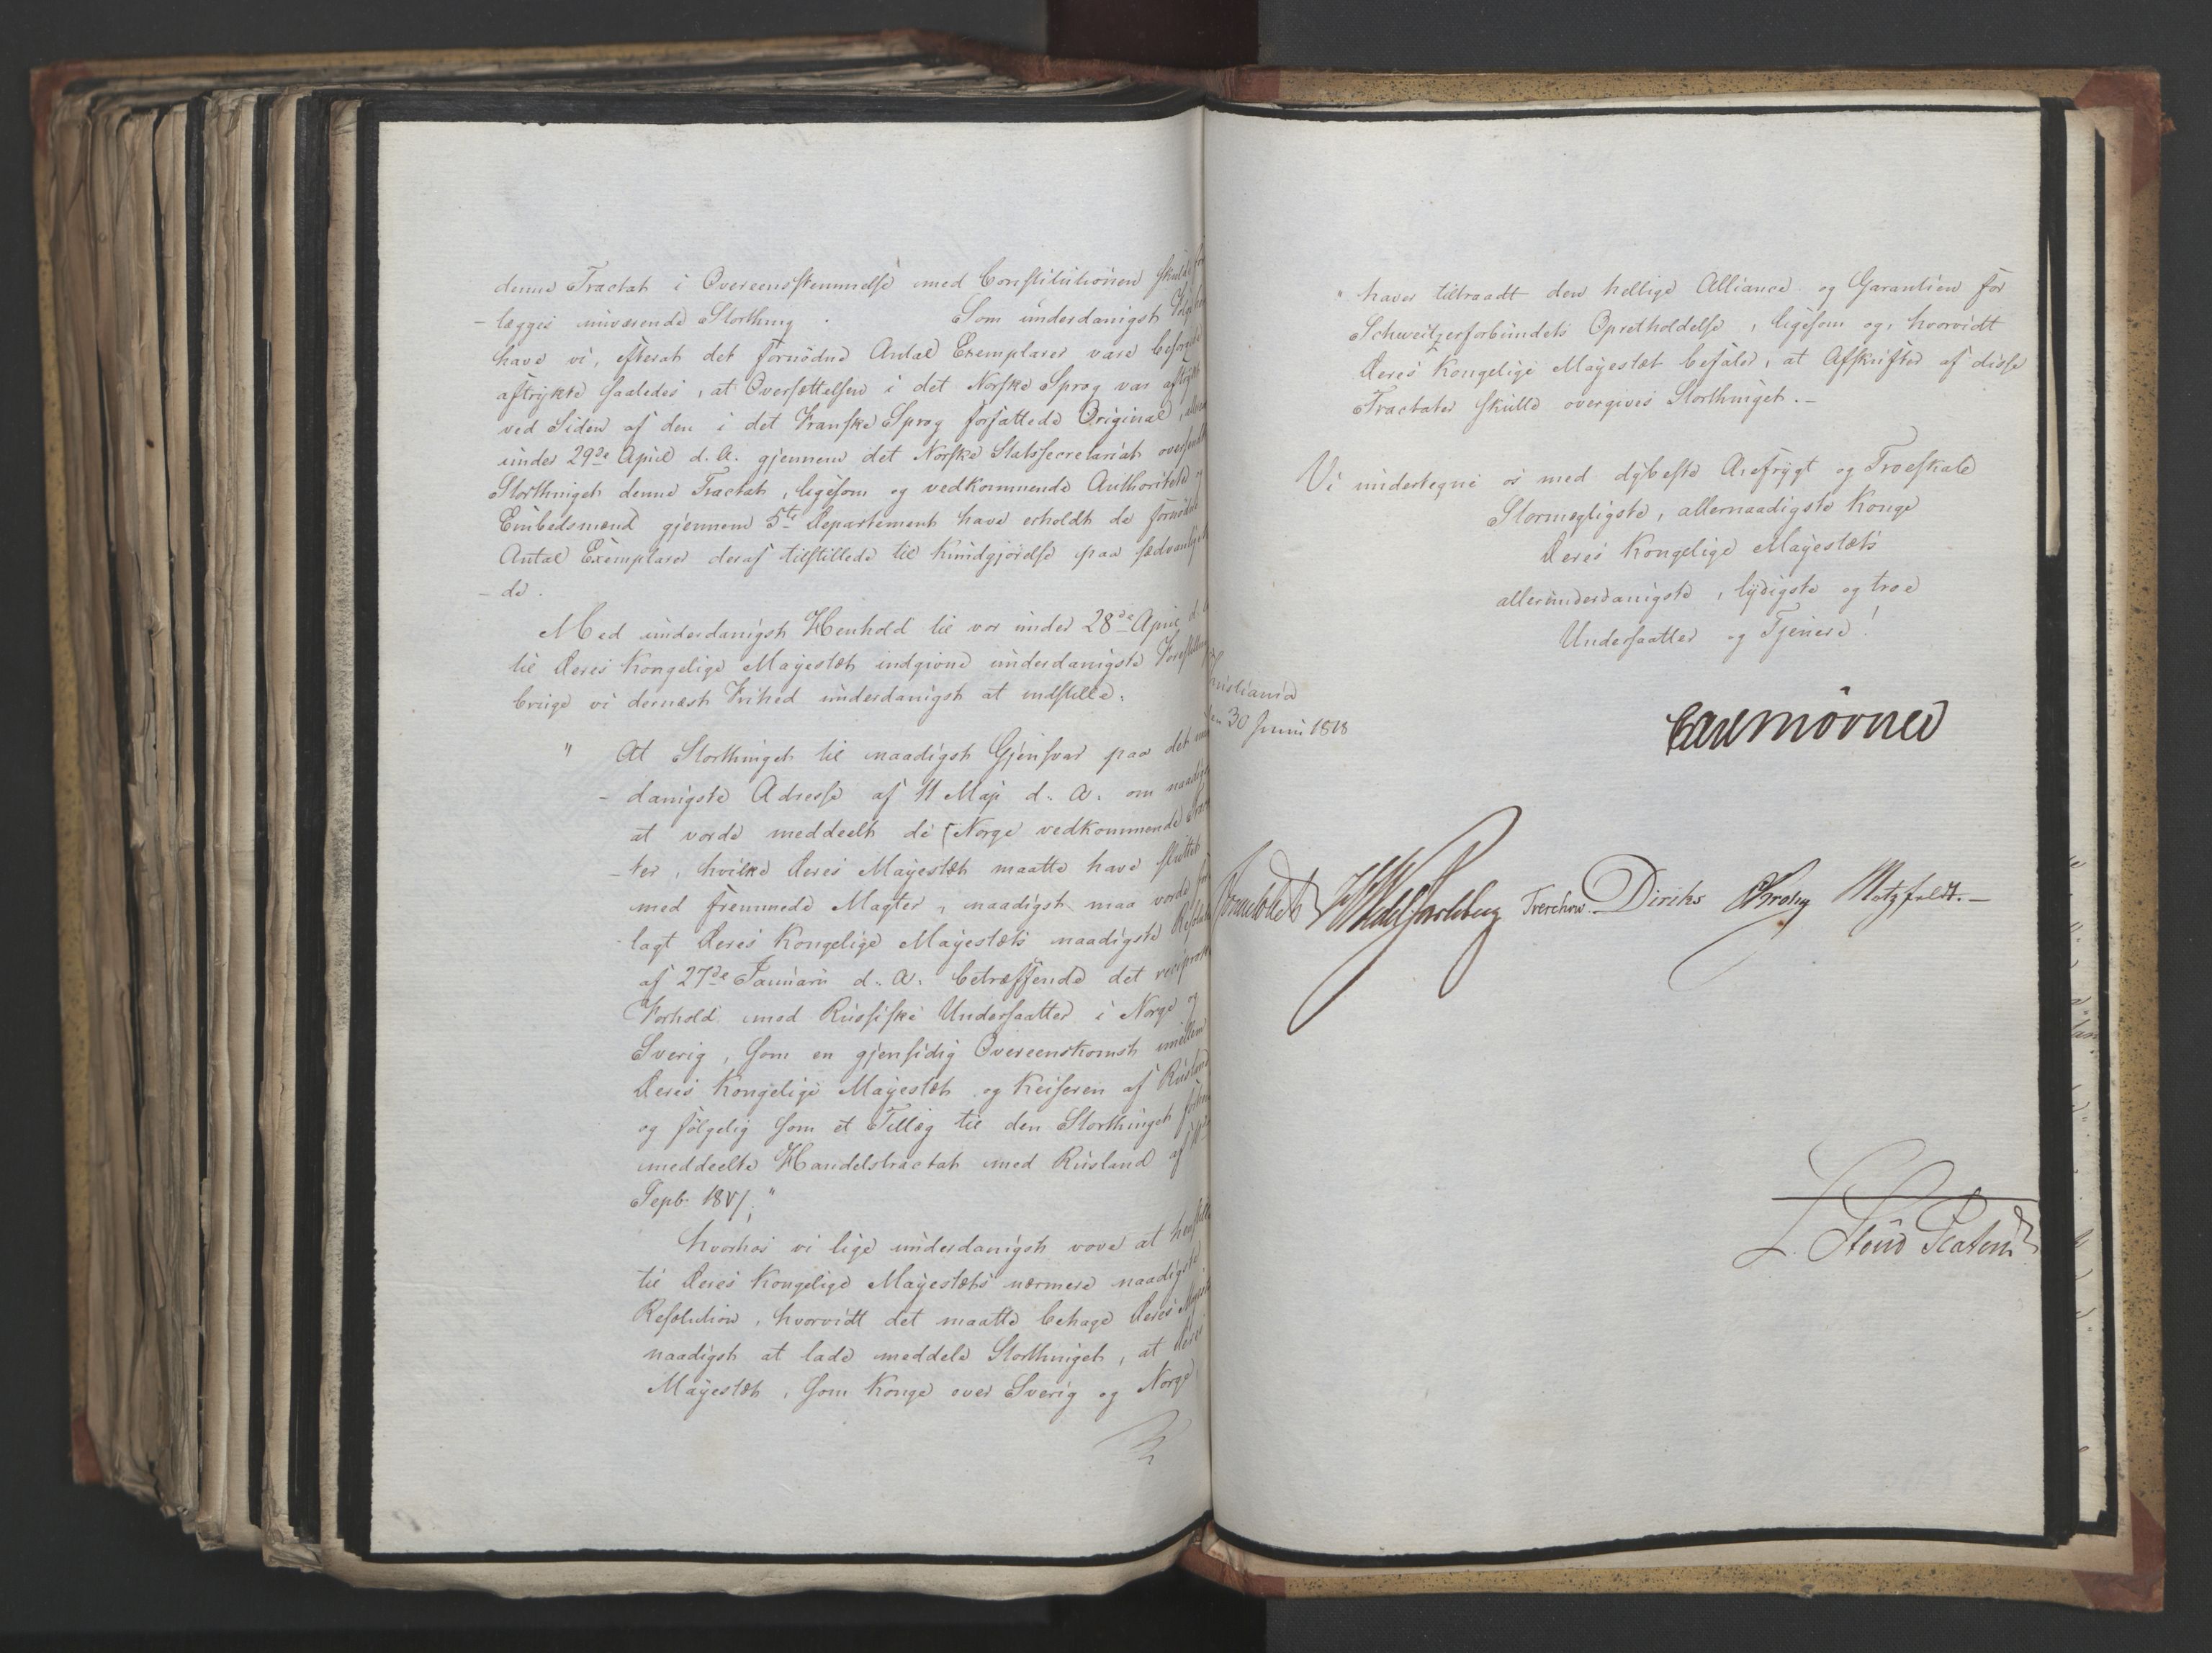 denne Tractat i Overeensstemmelse med Constitutionen skulde
- lægges nuværende Storthing. Som underdanigst Følge
have vi, efterat det fornødne Antal Exemplarer vare besørgede
aftrykte saaledes, at Oversættelsen i det Norske Sprog var aftrykt
ved Siden af den i det Franske Sprog forfattede Original,
under 29de April d. A. gjennem det Norske Statssecretariat oversendt
Storthinget denne Tractat, ligesom og vedkommende Authoriteter og
Embedsmænd gjennem 5te Departement have erholdt de fornødne
Antal Exemplarer deraf tilstillede til Kundgjørelse paa sædvanlig
- de.
Med underdanigst Henhold til vor under 28de April d. A.
til Deres Kongelige Mayestæt indgivne underdanigste Forestilling
bruge vi dernæst Frihed underdanigst at indstille:
" At Storthinget til naadigst Gjensvar paa det
- danigste Adresse af 11 Maji d. A. om naadigst
at vorde meddeelt de Norge vedkommende
- ter, hvilke Deres Mayestæt maatte have sluttet
med fremmede Magter, naadigst maa vorde
- lagt Deres Kongelige Mayestæts naadigste
af 27de Januarii d. A. betræffende det reciproke
Forhold med Russiske Undersaatter i Norge og
Sverig, som en gjensidig Overeenskomst imellem
Deres Kongelige Mayestæt og Keiseren af Rusland
og følgelig som et Tillæg til den Storthinget
meddeelte Handelstractat med Rusland af
Sepb. 1817; "
hvorhos vi lige underdanigst vove at henstille
til Deres Kongelige Mayestæts nærmere naadigste
Resolution, hvorvidt det maatte behage Deres Mayestæt
naadigst at lade meddele Storthinget, at Deres
Mayestæt, som Konge over Sverig og Norge,
" haver tiltraadt den hellige Alliance og Garantien for
Schweitzerforbundets Opretholdelse, ligesom og, hvorvidt
Deres Kongelige Mayestæt befaler, at Afskrifter af disse
Tractater skulle overgives Storthinget. -
Vi undertegne os med dybeste Ærefrygt og Troeskab
Stormægtigste, allernaadigste Konge
Deres Kongelige Mayestæts
allerunderdanigste, lydigste og troe
Undersaatter og Tjenere!
Christiania
den 30 Juni 1818
Carl Mörner
Sommerhielm HWedel Jarlsberg Treschow. Diriks CKrohg Motzfeldt. -
L. Stoud Platou